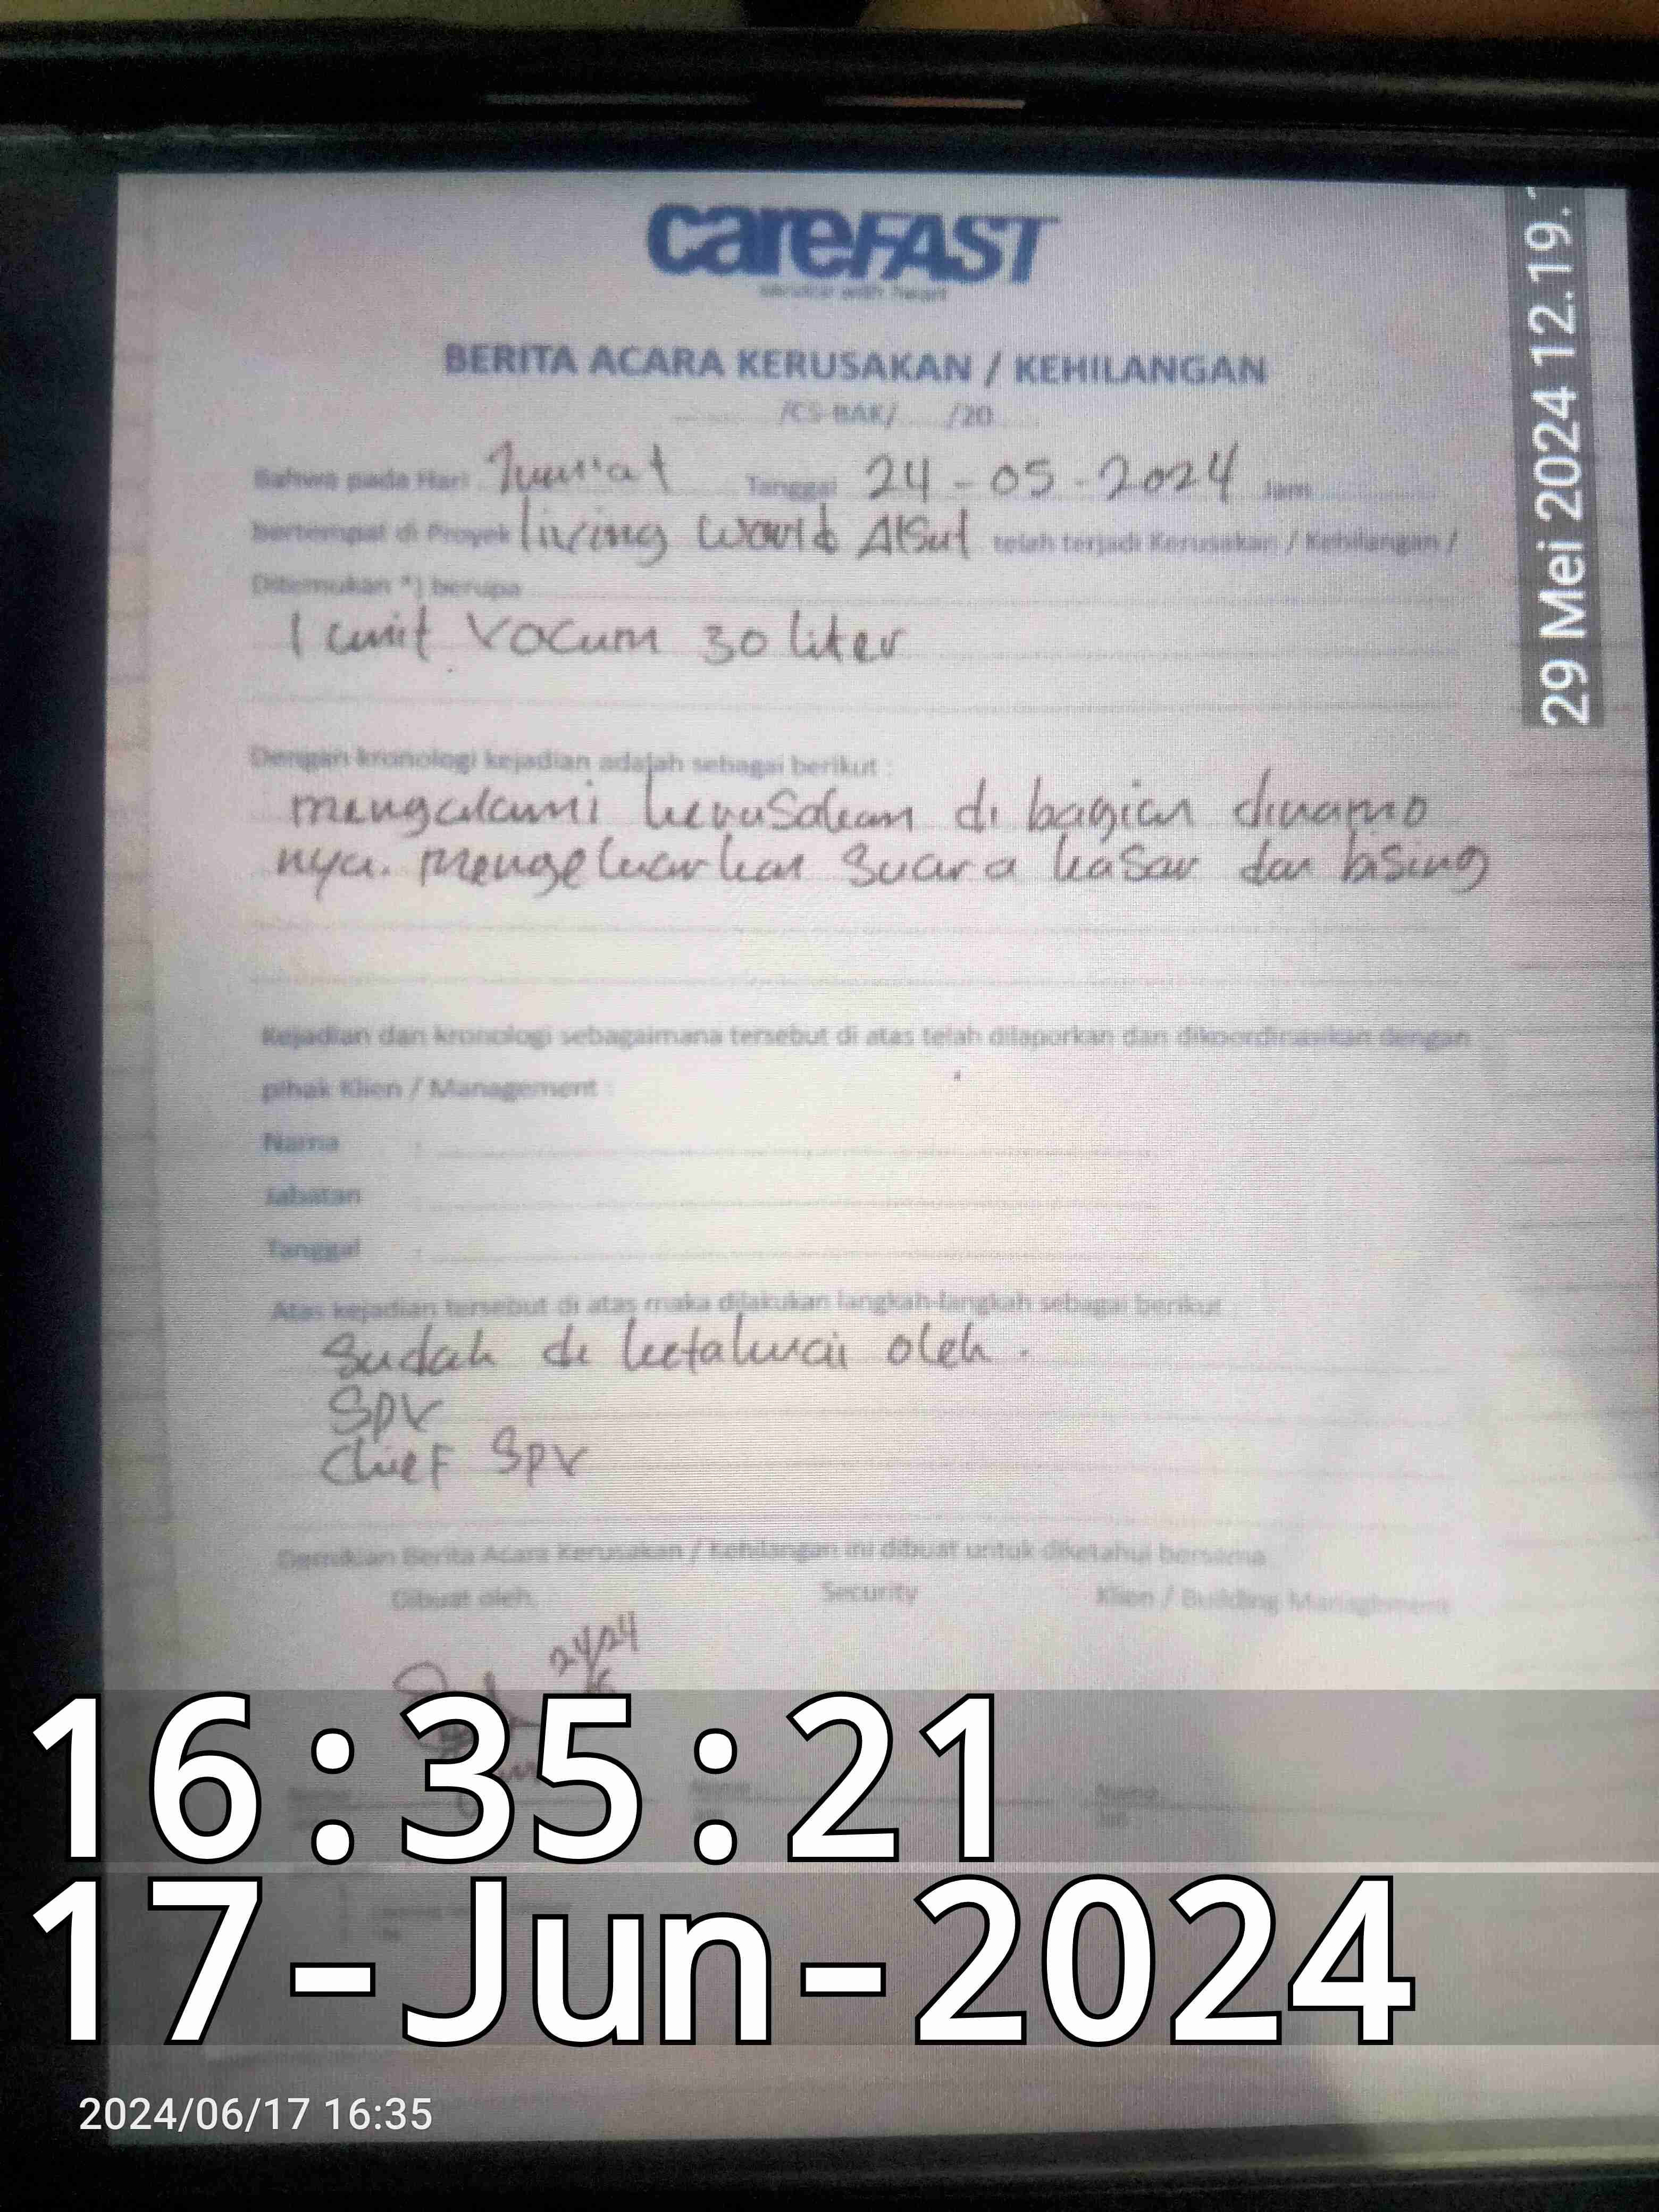 careFAST
service with heart
BERITA ACARA KERUSAKAN / KEHILANGAN
/CS-BAK/ /20
Bahwa pada Hari Jum'at Tanggal 24-05-2024 Jam
bertempat di Proyek living World Alsut telah terjadi Kerusakan / Kehilangan /
Ditemukan *) berupa
1 unit Vacum 30 liter
Dengan kronologi kejadian adalah sebagai berikut :
mengalami kerusakan di bagian dinamo
nya. mengeluarkan suara kasar dan bising
Kejadian dan kronologi sebagaimana tersebut di atas telah dilaporkan dan dikoordinasikan dengan
pihak Klien / Management :
Nama :
Jabatan :
Tanggal :
Atas kejadian tersebut di atas maka dilakukan langkah-langkah sebagai berikut :
Sudah di ketahui oleh.
Spv
Chief Spv
Demikian Berita Acara Kerusakan / Kehilangan ini dibuat untuk diketahui bersama
Dibuat oleh, Security Klien / Building Management
24/24
Nama Nama
29 Mei 2024 12.19.
16:35:21
17-Jun-2024
2024/06/17 16:35